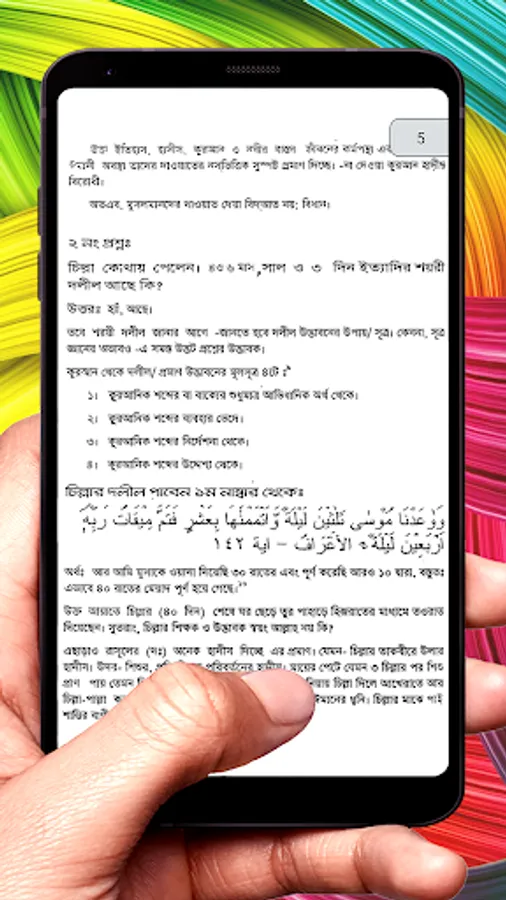 5
উক্ত ইতিহাস, হাদীস, কুরআন ও নবীর বাস্তব জীবনের কর্মপন্থা
অবস্থা তাদের দাওয়াতের সুস্পষ্ট প্রমাণ দিচ্ছে। দেওয়া কুরআন হাদীস
বিরোধী।
অতএব, মুসলমানদের দাওয়াত দেয়া বিদ্আত নয়; বিধান।
২ নং প্রশ্নঃ
চিল্লা কোথায় পেলেন। ৪০ দিন, সাল ও ৩ দিন ইত্যাদির শরয়ী
দলীল আছে কি?
উত্তরঃ হাঁ, আছে।
তবে শরয়ী দলীল জানার আগে -জানতে হবে দলীল উদ্ভাবনের উপায়/ সূত্র। কেননা, সূত্র
জ্ঞানের অভাবও -এ সমস্ত উদ্ভট প্রশ্নের উদ্ভাবক।
কুরআন থেকে দলীল/ প্রমাণ উদ্ভাবনের মূলসূত্র ৪টে ঃ
১। কুরআনিক শব্দের বা বাক্যের শুধুমাত্র আভিধানিক অর্থ থেকে।
২। কুরআনিক শব্দের ব্যবহার ভেদে।
৩। কুরআনিক শব্দের নির্দেশনা থেকে।
৪। কুরআনিক শব্দের উদ্দেশ্য থেকে।
চিল্লার দলীল পাবেন ১ম নাম্বার থেকেঃ
وَوٰعَدْنَا مُوْسٰى ثَلٰثِيْنَ لَيْلَةً وَّاَتْمَمْنٰهَا بِعَشْرٍ فَتَمَّ مِيْقَاتُ رَبِّهٖ
اَرْبَعِيْنَ لَيْلَةً ٥ الأعراف – اية ١٤٢
অর্থঃ আর আমি মুসাকে ওয়াদা দিয়েছি ৩০ রাতের এবং পূর্ণ করেছি আরও ১০ দ্বারা, বস্তুতঃ
এভাবে ৪০ রাতের মেয়াদ পূর্ণ হয়ে গেছে।
উক্ত আয়াতে চিল্লার (৪০ দিন) শেষে ঘর ছেড়ে তুর পাহাড়ে হিজরাতের মাধ্যমে তওরাত
দিয়েছেন। সুতরাং, চিল্লার শিক্ষক ও উদ্ভাবক স্বয়ং আল্লাহ নয় কি?
এছাড়াও রাসূলের (দঃ) অনেক হাদীস দিচ্ছে এর প্রমাণ। যেমন- চিল্লায় তাকবীরে উলার
হাদীস। উদর- শিশুর, পরিবর্তনের হাদীস। মায়ের পেটে যেমন ৩ চিল্লার পর শিশু
প্রাণ পায় তেমন চিল্লা দিলে আখেরাতে আর
চিল্লা-পাল্লা ঈমানের ধ্বনি। চিল্লার মাঝে পাই
শান্তির